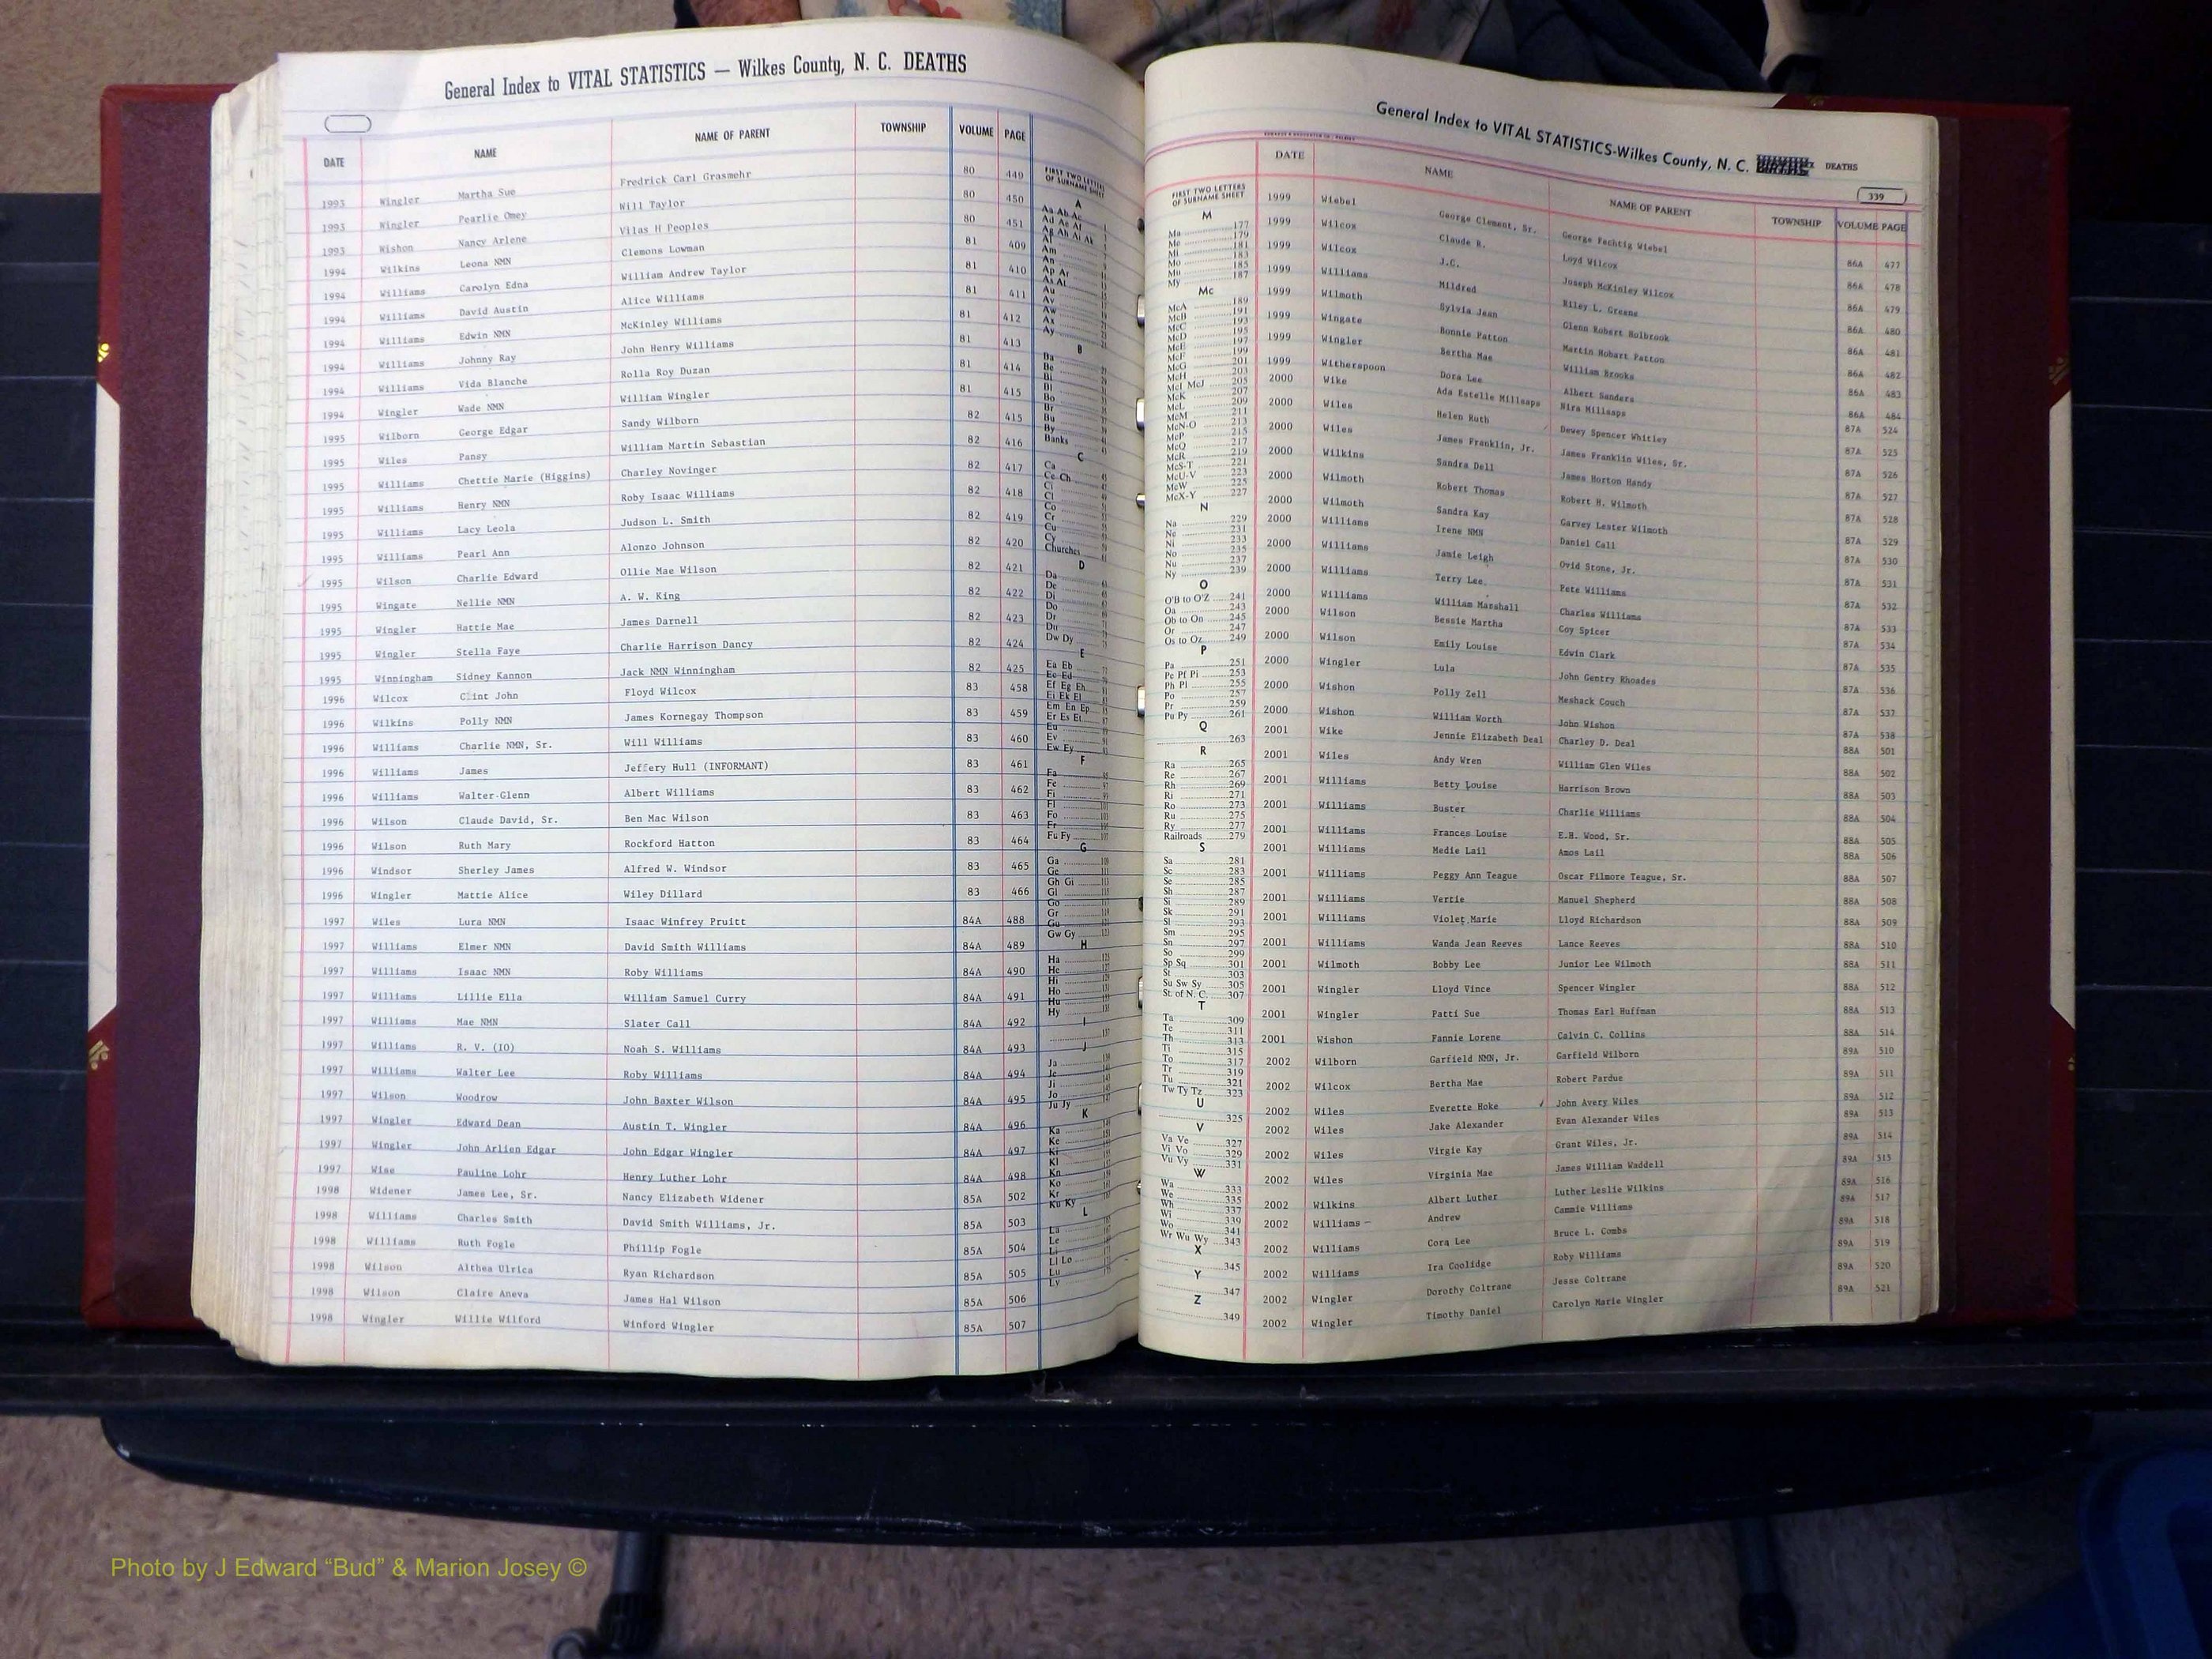 General Index to VITAL STATISTICS — Wilkes County, N. C. DEATHS
DATE NAME NAME OF PARENT TOWNSHIP VOLUME PAGE
1993 Wingler Martha Sue Fredrick Carl Grasmehr 80 449
1993 Wingler Pearlie Omey Will Taylor 80 450
1993 Wishon Nancy Arlene Vilas H Peoples 80 451
1994 Wilkins Leona NMN Clemons Lowman 81 409
1994 Williams Carolyn Edna William Andrew Taylor 81 410
1994 Williams David Austin Alice Williams 81 411
1994 Williams Edwin NMN McKinley Williams 81 412
1994 Williams Johnny Ray John Henry Williams 81 413
1994 Williams Vida Blanche Rolla Roy Duzan 81 414
1994 Wingler Wade NMN William Wingler 81 415
1995 Wilborn George Edgar Sandy Wilborn 82 415
1995 Wiles Pansy William Martin Sebastian 82 416
1995 Williams Chettie Marie (Higgins) Charley Novinger 82 417
1995 Williams Henry NMN Roby Isaac Williams 82 418
1995 Williams Lacy Leola Judson L. Smith 82 419
1995 Williams Pearl Ann Alonzo Johnson 82 420
1995 Wilson Charlie Edward Ollie Mae Wilson 82 421
1995 Wingate Nellie NMN A. W. King 82 422
1995 Wingler Hattie Mae James Darnell 82 423
1995 Wingler Stella Faye Charlie Harrison Dancy 82 424
1995 Winningham Sidney Kannon Jack NMN Winningham 82 425
1996 Wilcox Clint John Floyd Wilcox 83 458
1996 Wilkins Polly NMN James Kornegay Thompson 83 459
1996 Williams Charlie NMN, Sr. Will Williams 83 460
1996 Williams James Jeffery Hull (INFORMANT) 83 461
1996 Williams Walter Glenn Albert Williams 83 462
1996 Wilson Claude David, Sr. Ben Mac Wilson 83 463
1996 Wilson Ruth Mary Rockford Hatton 83 464
1996 Windsor Sherley James Alfred W. Windsor 83 465
1996 Wingler Mattie Alice Wiley Dillard 83 466
1997 Wiles Lura NMN Isaac Winfrey Pruitt 84A 488
1997 Williams Elmer NMN David Smith Williams 84A 489
1997 Williams Isaac NMN Roby Williams 84A 490
1997 Williams Lillie Ella William Samuel Curry 84A 491
1997 Williams Mae NMN Slater Call 84A 492
1997 Williams R. V. (IO) Noah S. Williams 84A 493
1997 Williams Walter Lee Roby Williams 84A 494
1997 Wilson Woodrow John Baxter Wilson 84A 495
1997 Wingler Edward Dean Austin T. Wingler 84A 496
1997 Wingler John Arlien Edgar John Edgar Wingler 84A 497
1997 Wise Pauline Lohr Henry Luther Lohr 84A 498
1998 Widener James Lee, Sr. Nancy Elizabeth Widener 85A 502
1998 Williams Charles Smith David Smith Williams, Jr. 85A 503
1998 Williams Ruth Fogle Phillip Fogle 85A 504
1998 Wilson Althea Ulrica Ryan Richardson 85A 505
1998 Wilson Claire Aneva James Hal Wilson 85A 506
1998 Wingler Willie Wilford Winford Wingler 85A 507
FIRST TWO LETTERS
OF SURNAME SHEET
A
Aa Ab Ac
Ad Ae Af
Ag Ah Ai Ak
Al
Am
An
Ap Ar
As At
Au
Av
Aw
Ax
Ay
B
Ba
Be
Bi
Bl
Bo
Br
Bu
By
Banks
C
Ca
Ce Ch
Ci
Cl
Co
Cr
Cu
Cy
Churches
D
Da
De
Di
Do
Dr
Du
Dw Dy
E
Ea Eb
Ec Ed
Ef Eg Eh
Ei Ek El
Em En Ep
Er Es Et
Eu
Ev
Ew Ey
F
Fa
Fe
Fi
Fl
Fo
Fr
Fu Fy
G
Ga
Ge
Gh Gi
Gl
Go
Gr
Gu
Gw Gy
H
Ha
He
Hi
Ho
Hu
Hy
I
J
Ja
Je
Ji
Jo
Ju Jy
K
Ka
Ke
Ki
Kl
Kn
Ko
Kr
Ku Ky
L
La
Le
Li
Ll Lo
Lu
Ly
General Index to VITAL STATISTICS-Wilkes County, N. C. DEATHS
339
FIRST TWO LETTERS
OF SURNAME SHEET
M
Ma 177
Me 179
Mi 181
Mo 183
Mu 185
My 187
Mc
McA 189
McB 191
McC 193
McD 195
McE 197
McF 199
McG 201
McH 203
McI McJ 205
McK 207
McL 209
McM 211
McN-O 213
McP 215
McQ 217
McR 219
McS-T 221
McU-V 223
McW 225
McX-Y 227
N
Na 229
Ne 231
Ni 233
No 235
Nu 237
Ny 239
O
O'B to O'Z 241
Oa 243
Ob to On 245
Or 247
Os to Oz 249
P
Pa 251
Pe Pf Pi 253
Ph Pl 255
Po 257
Pr 259
Pu Py 261
Q
263
R
Ra 265
Re 267
Rh 269
Ri 271
Ro 273
Ru 275
Ry 277
Railroads 279
S
Sa 281
Sc 283
Se 285
Sh 287
Si 289
Sk 291
Sl 293
Sm 295
Sn 297
So 299
Sp Sq 301
St 303
Su Sw Sy 305
St. of N. C. 307
T
Ta 309
Te 311
Th 313
Ti 315
To 317
Tr 319
Tu 321
Tw Ty Tz 323
U
325
V
Va Ve 327
Vi Vo 329
Vu Vy 331
W
Wa 333
We 335
Wh 337
Wi 339
Wo 341
Wr Wu Wy 343
X
345
Y
347
Z
349
DATE NAME NAME OF PARENT TOWNSHIP VOLUME PAGE
1999 Wiebel George Clement, Sr. George Fechtig Wiebel 86A 477
1999 Wilcox Claude R. Loyd Wilcox 86A 478
1999 Wilcox J.C. Joseph McKinley Wilcox 86A 479
1999 Williams Mildred Riley L. Greene 86A 480
1999 Wilmoth Sylvia Jean Glenn Robert Holbrook 86A 481
1999 Wingate Bonnie Patton Martin Hobart Patton 86A 482
1999 Wingler Bertha Mae William Brooks 86A 483
1999 Witherspoon Dora Lee Albert Sanders 86A 484
2000 Wike Ada Estelle Millsaps Nira Millsaps 87A 524
2000 Wiles Helen Ruth Dewey Spencer Whitley 87A 525
2000 Wiles James Franklin, Jr. James Franklin Wiles, Sr. 87A 526
2000 Wilkins Sandra Dell James Horton Handy 87A 527
2000 Wilmoth Robert Thomas Robert H. Wilmoth 87A 528
2000 Wilmoth Sandra Kay Garvey Lester Wilmoth 87A 529
2000 Williams Irene NMN Daniel Call 87A 530
2000 Williams Jamie Leigh Ovid Stone, Jr. 87A 531
2000 Williams Terry Lee Pete Williams 87A 532
2000 Williams William Marshall Charles Williams 87A 533
2000 Wilson Bessie Martha Coy Spicer 87A 534
2000 Wilson Emily Louise Edwin Clark 87A 535
2000 Wingler Lula John Gentry Rhoades 87A 536
2000 Wishon Polly Zell Meshack Couch 87A 537
2000 Wishon William Worth John Wishon 87A 538
2001 Wike Jennie Elizabeth Deal Charley D. Deal 88A 501
2001 Wiles Andy Wren William Glen Wiles 88A 502
2001 Williams Betty Louise Harrison Brown 88A 503
2001 Williams Buster Charlie Williams 88A 504
2001 Williams Frances Louise E.H. Wood, Sr. 88A 505
2001 Williams Medie Lail Amos Lail 88A 506
2001 Williams Peggy Ann Teague Oscar Filmore Teague, Sr. 88A 507
2001 Williams Vertie Manuel Shepherd 88A 508
2001 Williams Violet Marie Lloyd Richardson 88A 509
2001 Williams Wanda Jean Reeves Lance Reeves 88A 510
2001 Wilmoth Bobby Lee Junior Lee Wilmoth 88A 511
2001 Wingler Lloyd Vince Spencer Wingler 88A 512
2001 Wingler Patti Sue Thomas Earl Huffman 88A 513
2001 Wishon Fannie Lorene Calvin C. Collins 88A 514
2002 Wilborn Garfield NMN, Jr. Garfield Wilborn 89A 510
2002 Wilcox Bertha Mae Robert Pardue 89A 511
2002 Wiles Everette Hoke John Avery Wiles 89A 512
2002 Wiles Jake Alexander Evan Alexander Wiles 89A 513
2002 Wiles Virgie Kay Grant Wiles, Jr. 89A 514
2002 Wiles Virginia Mae James William Waddell 89A 515
2002 Wilkins Albert Luther Luther Leslie Wilkins 89A 516
2002 Williams Andrew Cammie Williams 89A 517
2002 Williams Cora Lee Bruce L. Combs 89A 518
2002 Williams Ira Coolidge Roby Williams 89A 519
2002 Wingler Dorothy Coltrane Jesse Coltrane 89A 520
2002 Wingler Timothy Daniel Carolyn Marie Wingler 89A 521
Photo by J Edward “Bud” & Marion Josey ©